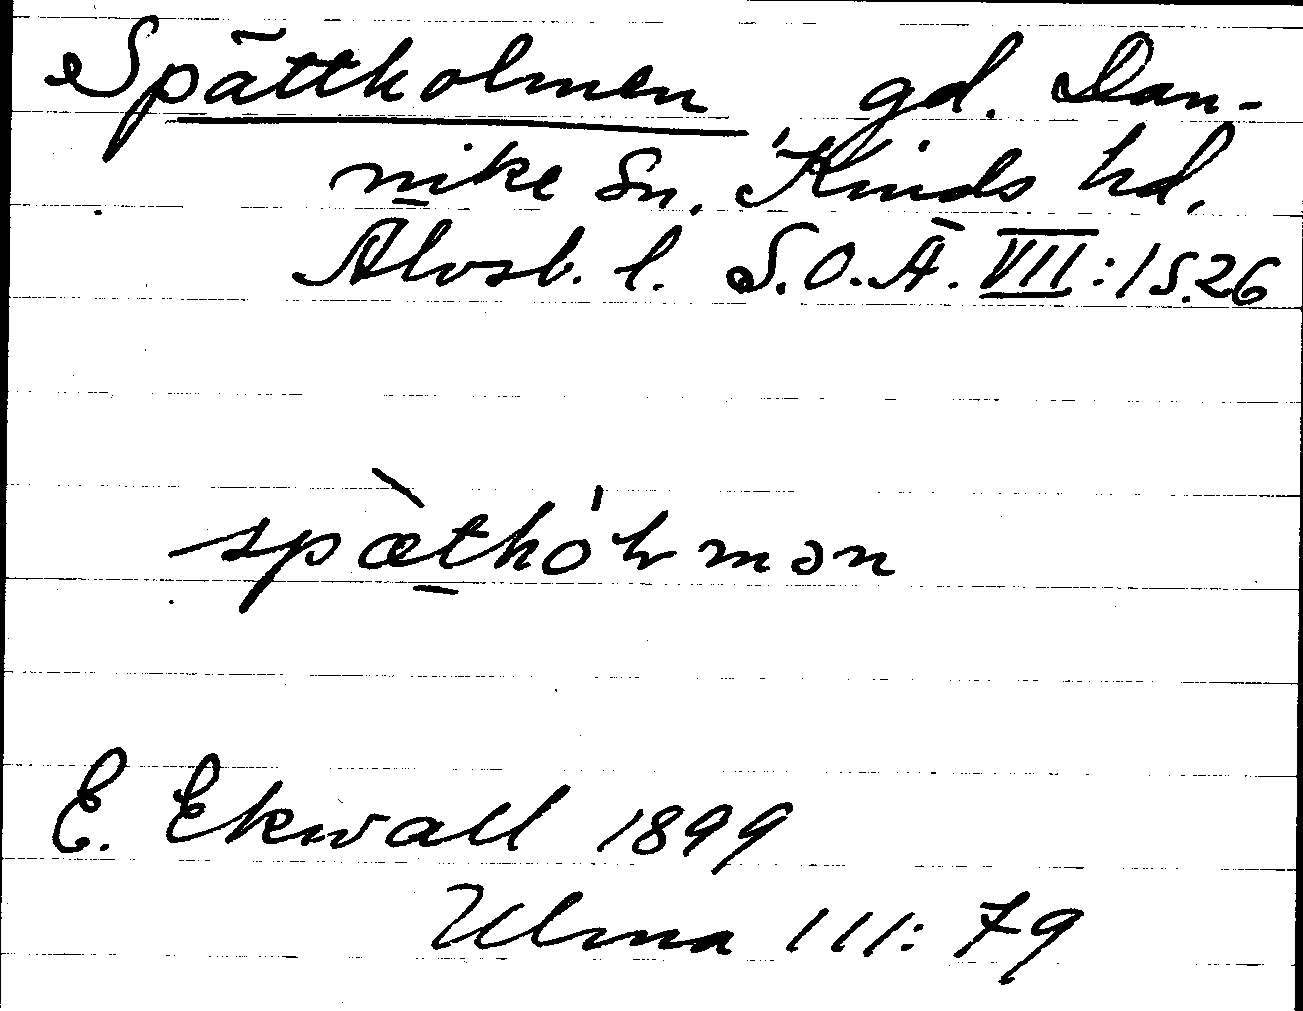 Spättholmen gd. Dan-
nike sn. Kinds hd.
Älvsb. l. S.O.Ä. VII:1 S.26
spæ̀thó̵lmən
E. Ekwall 1899
Ulma 111: 79